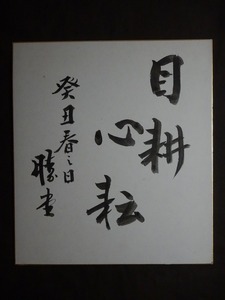 目耕
心耘
癸丑春之日
勝堂